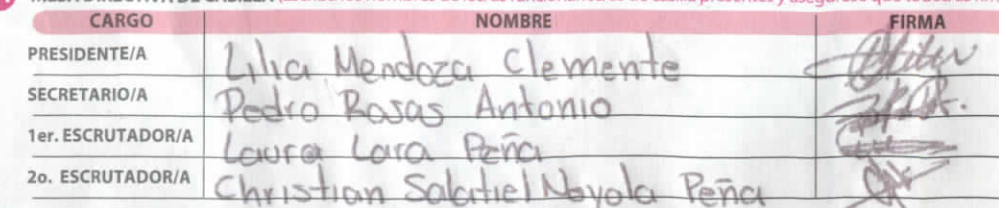 CARGO NOMBRE FIRMA
PRESIDENTE/A Lilia Mendoza Clemente
SECRETARIO/A Pedro Rosas Antonio
1er. ESCRUTADOR/A Laura Lara Peña
2o. ESCRUTADOR/A Christian Salatiel Noyola Peña